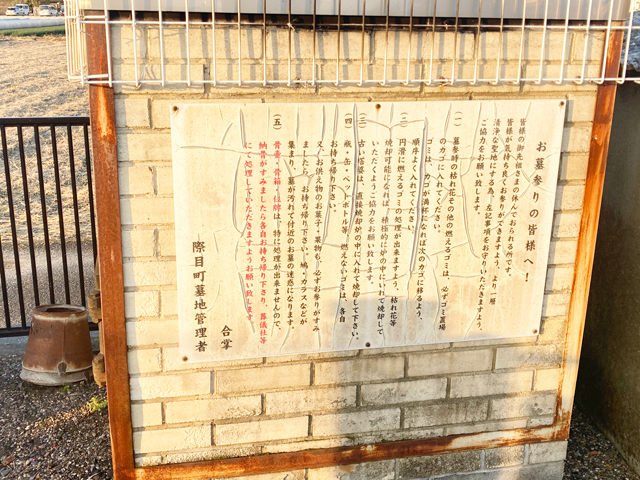 お墓参りの皆様へ!
皆様の御先祖さまの休んでおられる所です。
皆様が気持ち良くお参りができますよう、より一層
清浄な聖地にする為、左記事項をお守りいただきますよう、
ご協力をお願い致します。
(一) 墓参時の枯れ花その他の燃えるゴミは、必ずゴミ置場
のカゴに入れてください。
ゴミは、カゴが満杯になれば次のカゴに移るよう、
順序よく入れてください。
(二) 円滑に燃えるゴミの処理が出来ますよう、枯れ花等
焼却可能になれば、積極的に炉の中にいれて焼却して
いただくようご協力をお願い致します。
(三) 古い塔婆は、直接焼却炉の中に入れて焼却して下さい。
(四) 瓶・缶・ペットボトル等、燃えないゴミは、各自
お持ち帰り下さい。
又、お供え物のお菓子・果物も、必ずお参りがすみ
ましたら、お持ち帰り下さい。鳩・カラスなどが
集まり、墓が汚れて付近のお墓の迷惑になります。
(五) 骨壷・骨箱・位牌は、特に処理が出来ませんので、
納骨がすみましたら各自お持ち帰り下さり、葬儀社等
に処理していただきますようお願い致します。
合掌
際目町墓地管理者